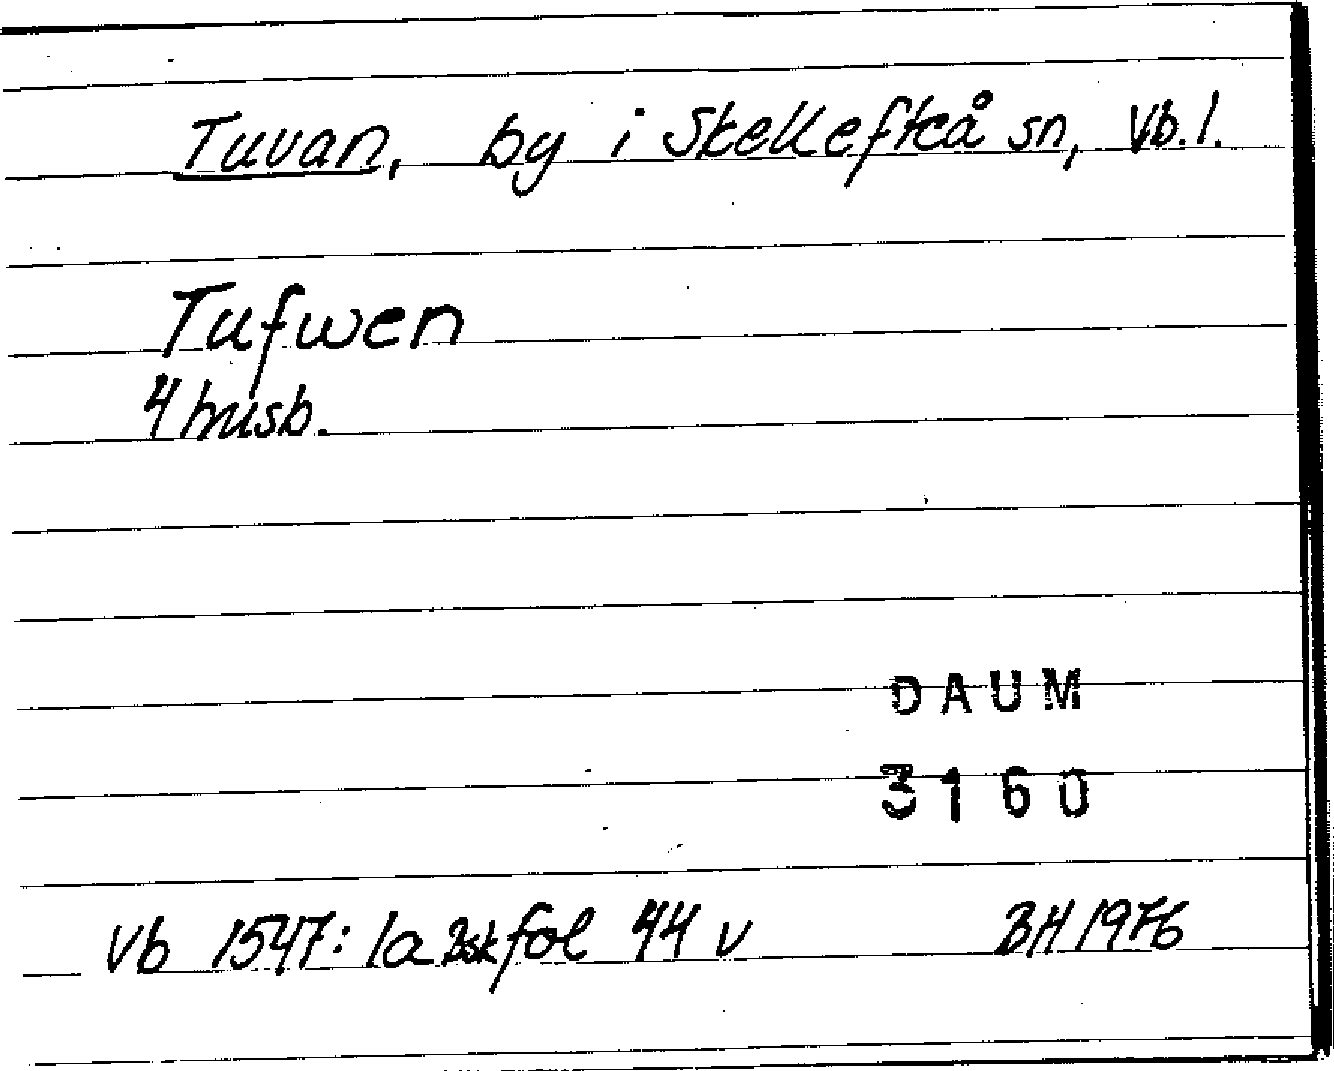 Tuvan, by i Skellefteå sn, Vb.l.
Tufwen
4 husb.
DAUM
3160
Vb 1547: 1a Bsk fol 44 v BH 1976